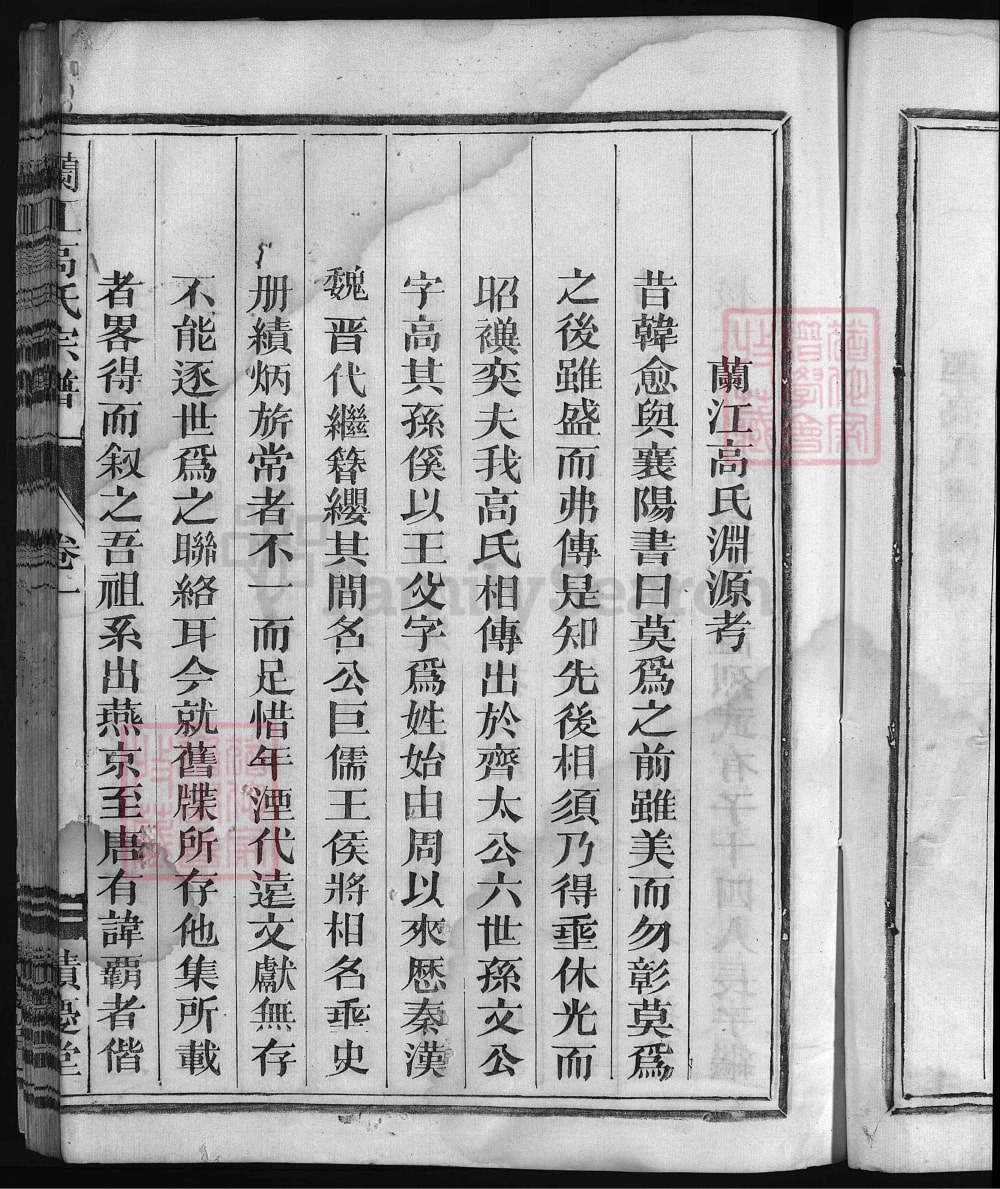 蘭江高氏淵源考
昔韓愈與襄陽書曰莫爲之前雖美而勿彰莫爲
之後雖盛而弗傳是知先後相須乃得垂休光而
昭禩奕夫我高氏相傳出於齊太公六世孫文公
字高其孫傒以王父字爲姓始由周以來歷秦漢
魏晋代繼簪纓其間名公巨儒王侯將相名垂史
册績炳旂常者不一而足惜年湮代遠文獻無存
不能逐世爲之聯絡耳今就舊牒所存他集所載
者畧得而叙之吾祖系出燕京至唐有諱霸者偕
蘭江高氏宗譜
卷一
FamilySearch